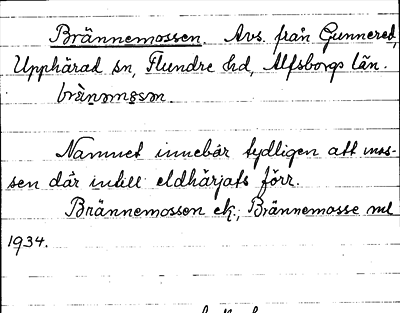 Brännemossen. Avs. från Gunnered,
Upphärad sn, Flundre hd, Älfsborgs län.
brànəmɷsən.
Namnet innebär tydligen att mos-
sen där intill eldhärjats förr.
Brännemossen ek.; Brännemosse ml
1934.